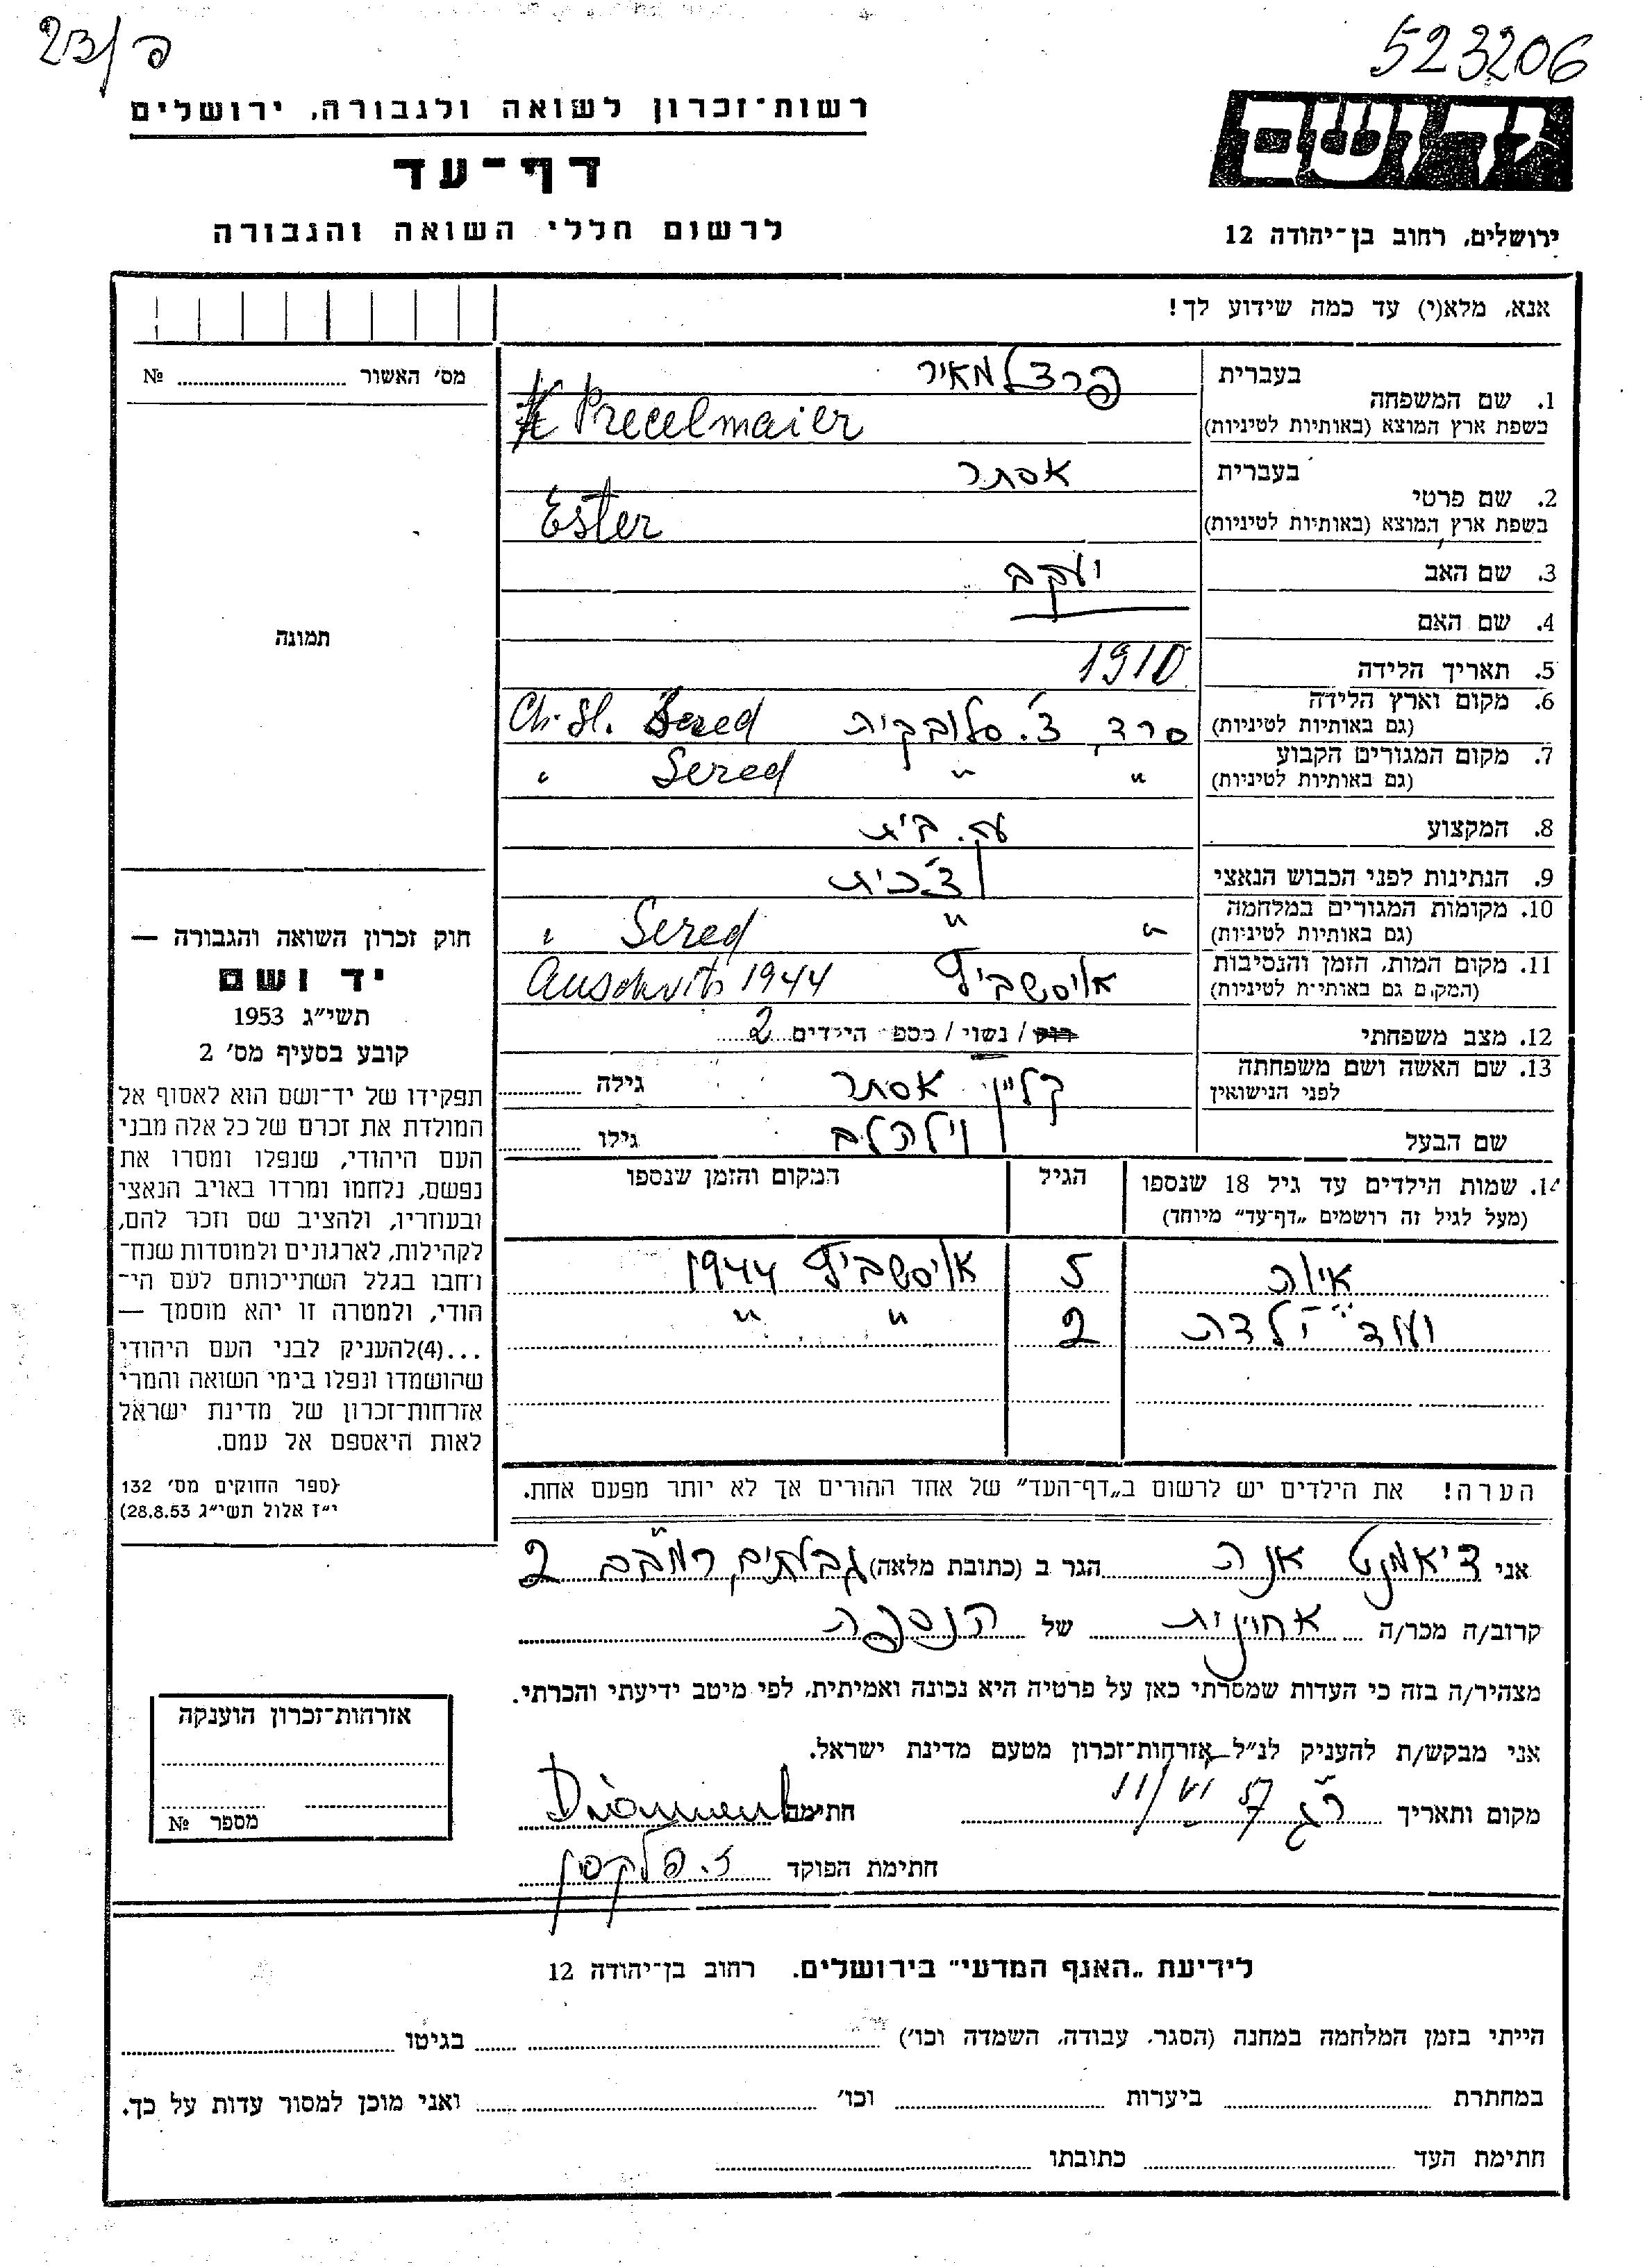 523206
23/פ
יד ושם
רשות-זכרון לשואה ולגבורה, ירושלים
דף-עד
לרשום חללי השואה והגבורה
ירושלים, רחוב בן-יהודה 12
אנא, מלא(י) עד כמה שידוע לך!
מס׳ האשור № 
תמונה
1. שם המשפחה בעברית פרצלמאיר
בשפת ארץ המוצא (באותיות לטיניות) Precelmaier
2. שם פרטי בעברית אסתר
בשפת ארץ המוצא (באותיות לטיניות) Ester
3. שם האב יעקב
4. שם האם
5. תאריך הלידה 1910
6. מקום וארץ הלידה סרד, צ׳. סלובקית Sered Ch. Sl.
(גם באותיות לטיניות)
7. מקום המגורים הקבוע " " Sered "
(גם באותיות לטיניות)
8. המקצוע עק. בית
9. הנתינות לפני הכבוש הנאצי צ׳כית
10. מקומות המגורים במלחמה " " Sered "
(גם באותיות לטיניות)
11. מקום המות, הזמן והנסיבות אוישביץ Auschvits 1944
(המקום גם באותיות לטיניות)
12. מצב משפחתי רוק / נשוי / מספר הילדים 2
13. שם האשה ושם משפחתה קליין אסתר גילה
לפני הנישואין
שם הבעל גילו
14. שמות הילדים עד גיל 18 שנספו הגיל המקום והזמן שנספו
(מעל לגיל זה רושמים „דף-עד" מיוחד)
אוישביץ 1944 5
ועוד ילדת 2 " "
הערה! את הילדים יש לרשום ב„דף-העד" של אחד ההורים אך לא יותר מפעם אחת.
חוק זכרון השואה והגבורה —
יד ושם
תשי״ג 1953
קובע בסעיף מס׳ 2
תפקידו של יד-ושם הוא לאסוף אל
המולדת את זכרם של כל אלה מבני
העם היהודי, שנפלו ומסרו את
נפשם, נלחמו ומרדו באויב הנאצי
ובעוזריו, ולהציב שם וזכר להם,
לקהילות, לארגונים ולמוסדות שנח-
רבו בגלל השתייכותם לעם הי-
הודי, ולמטרה זו יהא מוסמך —
...(4)להעניק לבני העם היהודי
שהושמדו ונפלו בימי השואה והמרי
אזרחות-זכרון של מדינת ישראל
לאות היאספם אל עמם.
(ספר החוקים מס׳ 132
י״ז אלול תשי״ג 28.8.53)
אני דיאמנט אנה הגר ב (כתובת מלאה) גבעתים, רמב״ם 2
קרוב/ה מכר/ה אחינית של הנספה
מצהיר/ה בזה כי העדות שמסרתי כאן על פרטיה היא נכונה ואמיתית, לפי מיטב ידיעתי והכרתי.
אני מבקש/ת להעניק לנ״ל אזרחות-זכרון מטעם מדינת ישראל.
מקום ותאריך ר״ג 11/VI 57 חתימה
חתימת הפוקד
אזרחות-זכרון הוענקה
מספר №
לידיעת „האגף המדעי" בירושלים. רחוב בן-יהודה 12
הייתי בזמן המלחמה במחנה (הסגר, עבודה, השמדה וכו׳) בגיטו
במחתרת ביערות וכו׳ ואני מוכן למסור עדות על כך.
חתימת העד כתובתו